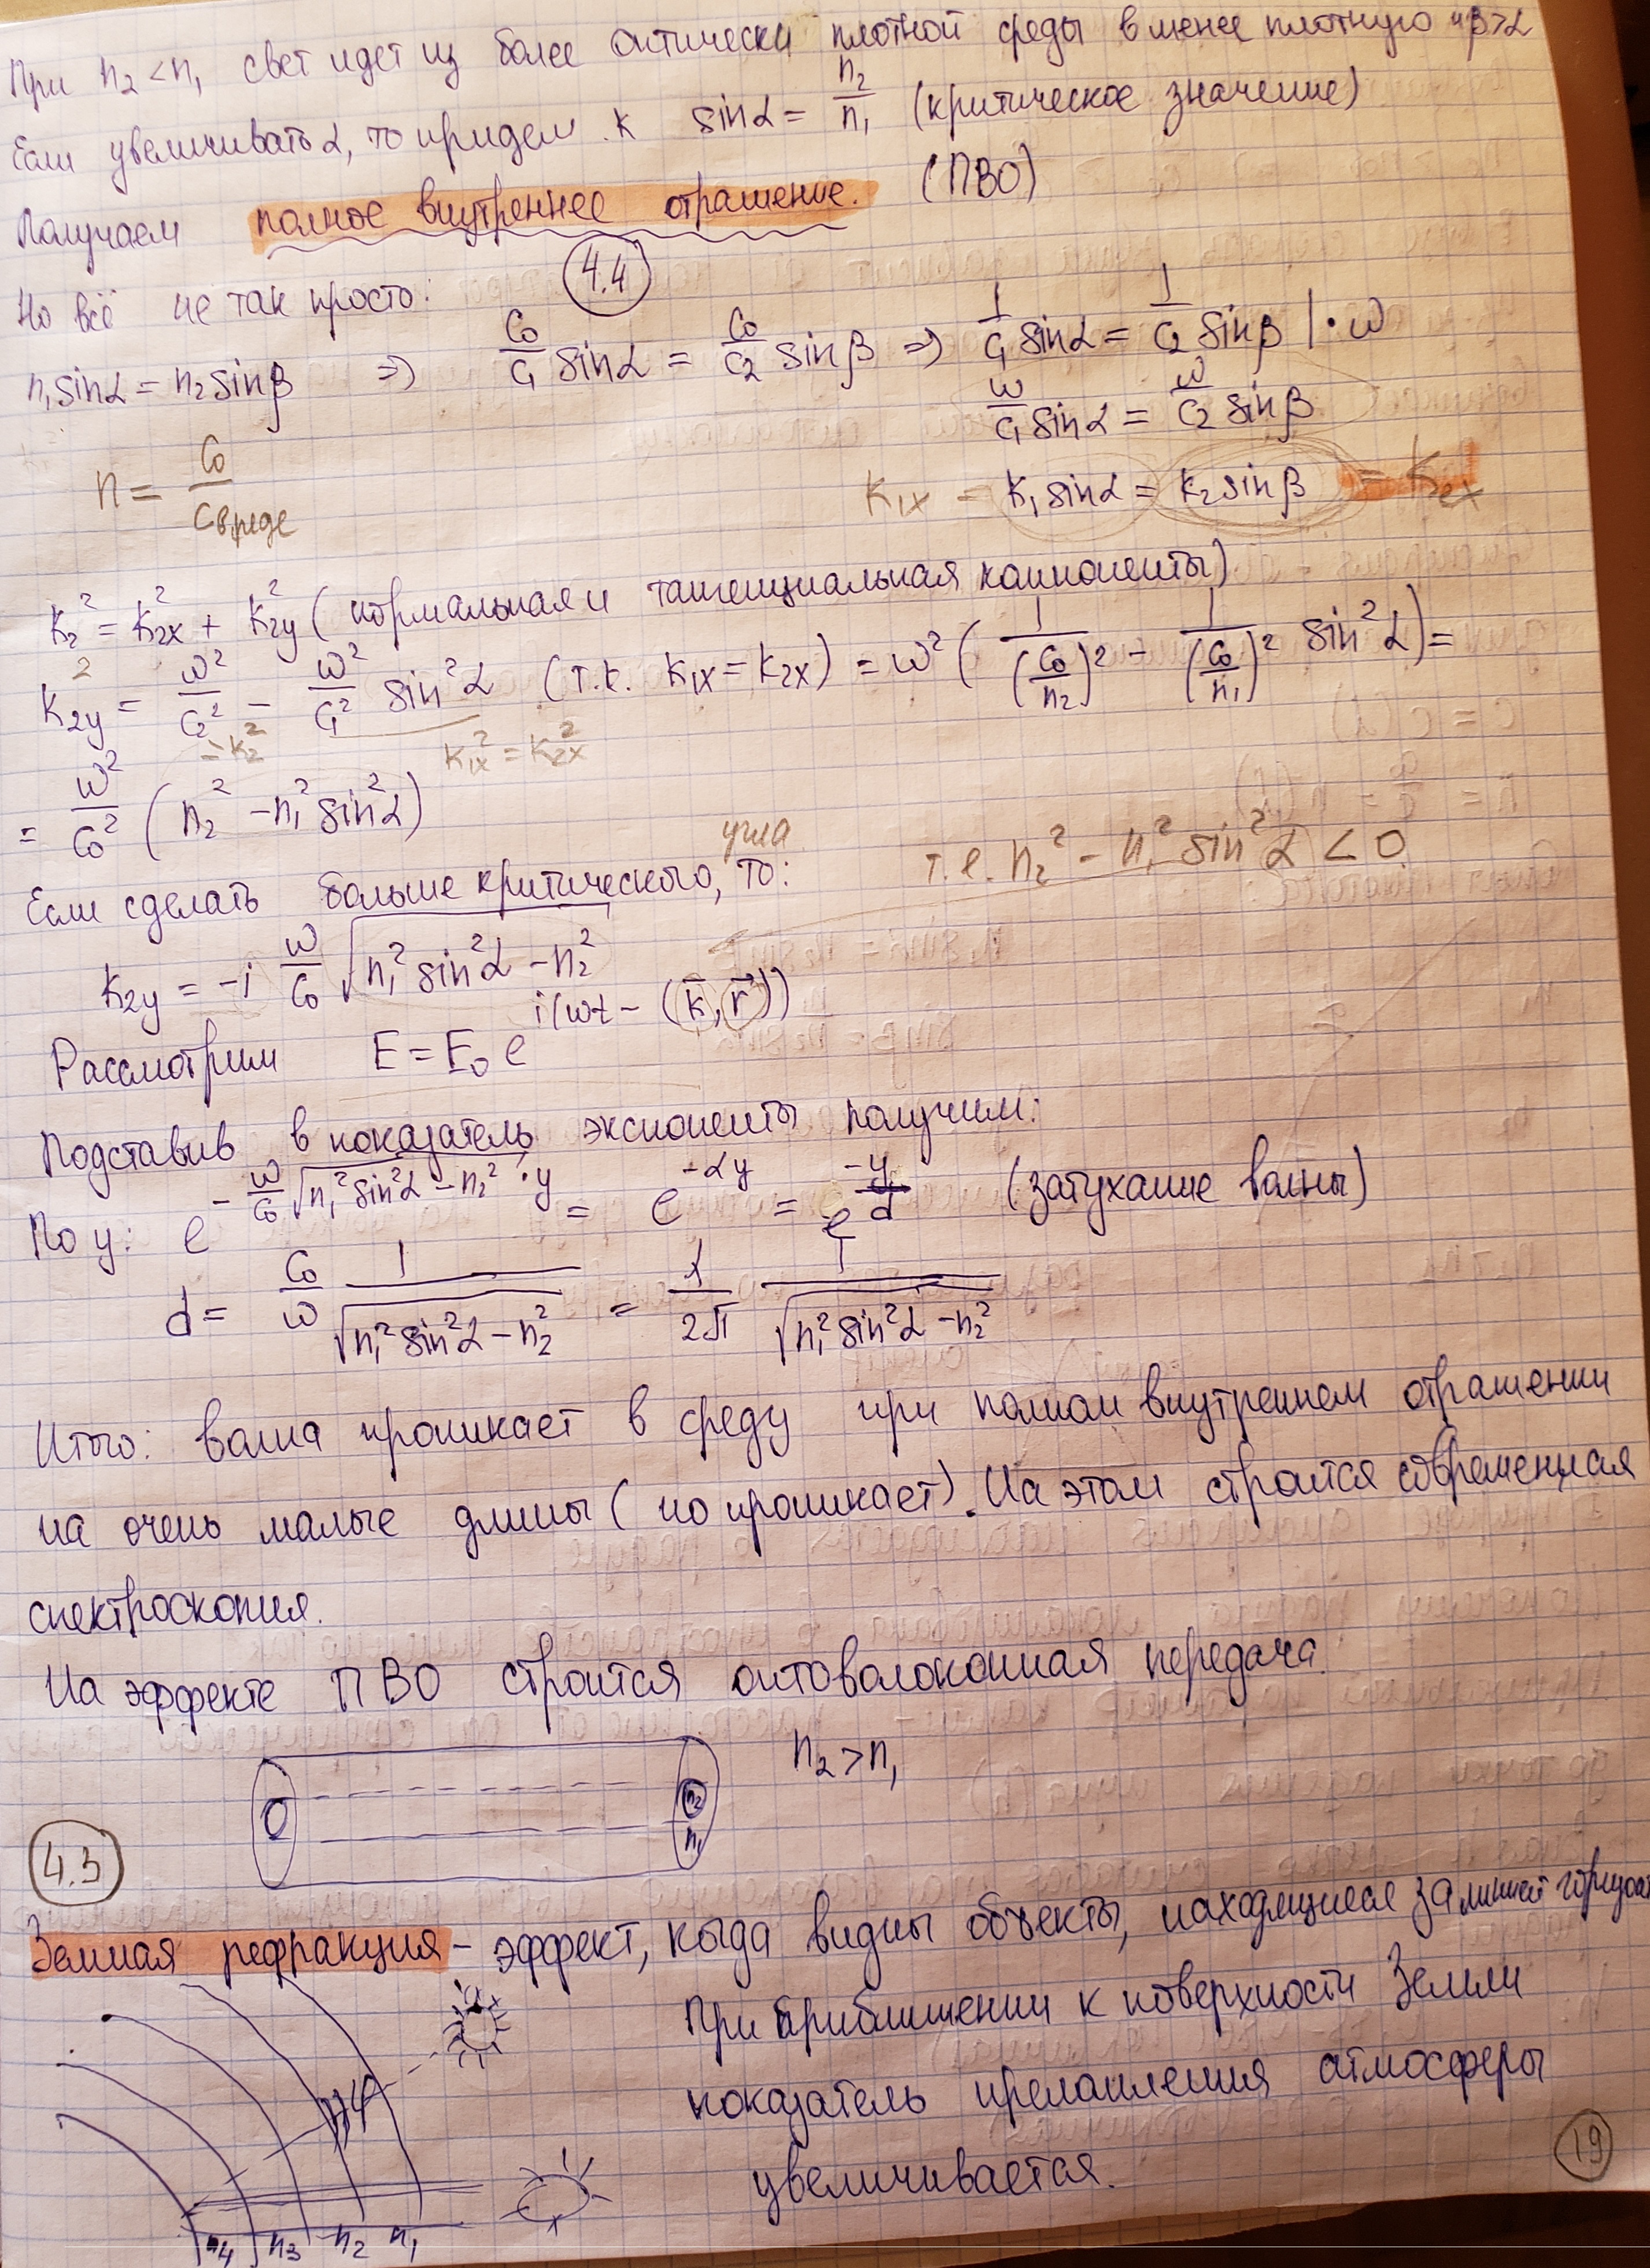 При n₂ < n₁ свет идет из более оптически плотной среды в менее плотную и β>α
Если увеличивать α, то придем к sinα = n₂/n₁ (критическое значение)
Получаем полное внутреннее отражение. (ПВО)
4.4
Но всё не так просто:
n₁sinα = n₂sinβ ⇒ C₀/C₁ sinα = C₀/C₂ sinβ ⇒ 1/C₁ sinα = 1/C₂ sinβ | · ω
ω/C₁ sinα = ω/C₂ sinβ
n = C₀/Cв среде
K₁ₓ = K₁sinα = K₂sinβ = K₂ₓ
K₂² = K₂ₓ² + K₂y² (нормальная и тангенциальная компоненты)
K₂y² = ω²/C₂² − ω²/C₁² sin²α (т.к. K₁ₓ = K₂ₓ) = ω²(1/(C₀/n₂)² − 1/(C₀/n₁)² sin²α) =
= K₂² K₁ₓ² = K₂ₓ²
= ω²/C₀² (n₂² − n₁² sin²α)
Если сделать больше критического угла, то: т.е. n₂² − n₁² sin²α < 0
K₂y = −i ω/C₀ √(n₁² sin²α − n₂²)
Рассмотрим E = E₀ e^(i(ωt − (k⃗, r⃗)))
Подставив в показатель экспоненты получим:
По y: e^(−ω/C₀ √(n₁² sin²α − n₂²) · y) = e^(−αy) = e^(−y/d) (затухание волны)
d = C₀/ω 1/√(n₁² sin²α − n₂²) = λ/2π 1/√(n₁² sin²α − n₂²)
Итого: волна проникает в среду при полном внутреннем отражении
на очень малые длины (но проникает). На этом строится современная
спектроскопия.
На эффекте ПВО строится оптоволоконная передача.
n₂ > n₁
n₂
n₁
4.3
Земная рефракция – эффект, когда видны объекты, находящиеся за линией горизонта
При приближении к поверхности Земли
показатель преломления атмосферы
увеличивается.
φ
n₄ n₃ n₂ n₁
19